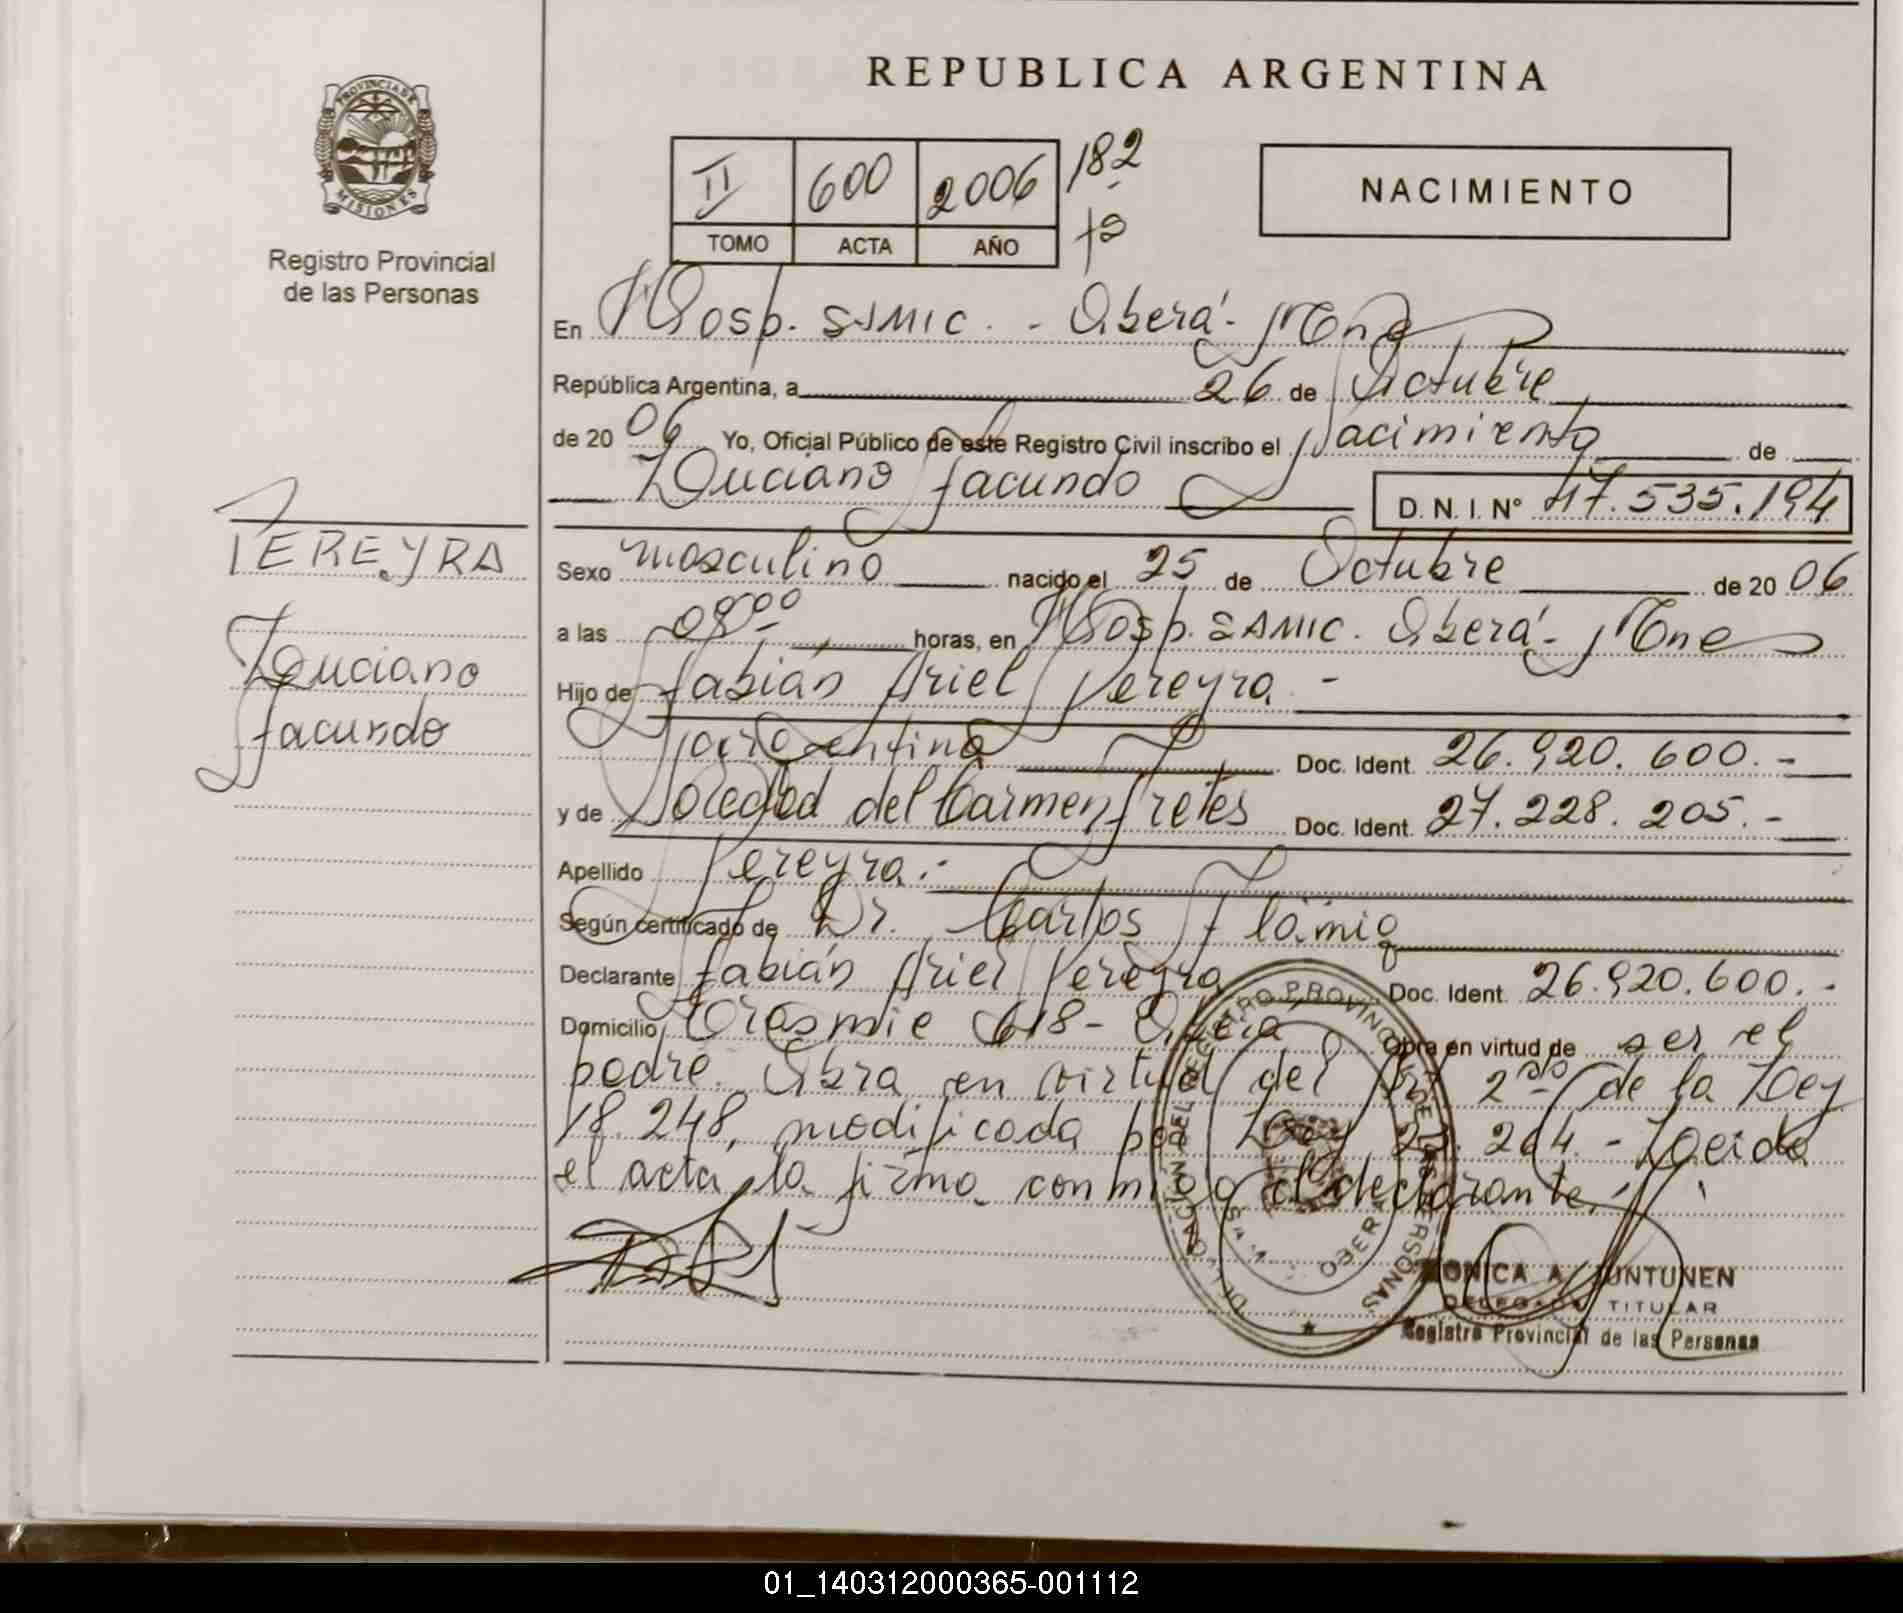 REPUBLICA ARGENTINA
PROVINCIA DE MISIONES
Registro Provincial
de las Personas
II 600 2006 182
TOMO ACTA AÑO
NACIMIENTO
En Hosp. SAMIC. - Oberá - Mnes
República Argentina, a 26 de Octubre
de 20 06 Yo, Oficial Público de este Registro Civil inscribo el Nacimiento de
Luciano Facundo D. N. I. Nº 47.535.194
PEREYRA
Luciano
Facundo
Sexo masculino nacido el 25 de Octubre de 20 06
a las 08:00 horas, en Hosp. SAMIC. Oberá - Mnes
Hijo de Fabián Ariel Pereyra -
argentina Doc. Ident. 26.920.600.-
y de Soledad del Carmen Fretes Doc. Ident. 27.228.205.-
Apellido Pereyra.-
Según certificado de Dr. Carlos Flämig
Declarante Fabián Ariel Pereyra Doc. Ident. 26.920.600.-
Domicilio 618 - Oberá Obra en virtud de ser el
padre. Obra en virtud del Art 2do de la Ley
18.248, modificada por Ley 264.- Leida
el acta, la firma conmigo el declarante.
DELEGACIÓN DEL REGISTRO PROVINCIAL DE LAS PERSONAS
OBERA
MONICA A. JUNTUNEN
DELEGADA TITULAR
Registro Provincial de las Personas
01_140312000365-001112